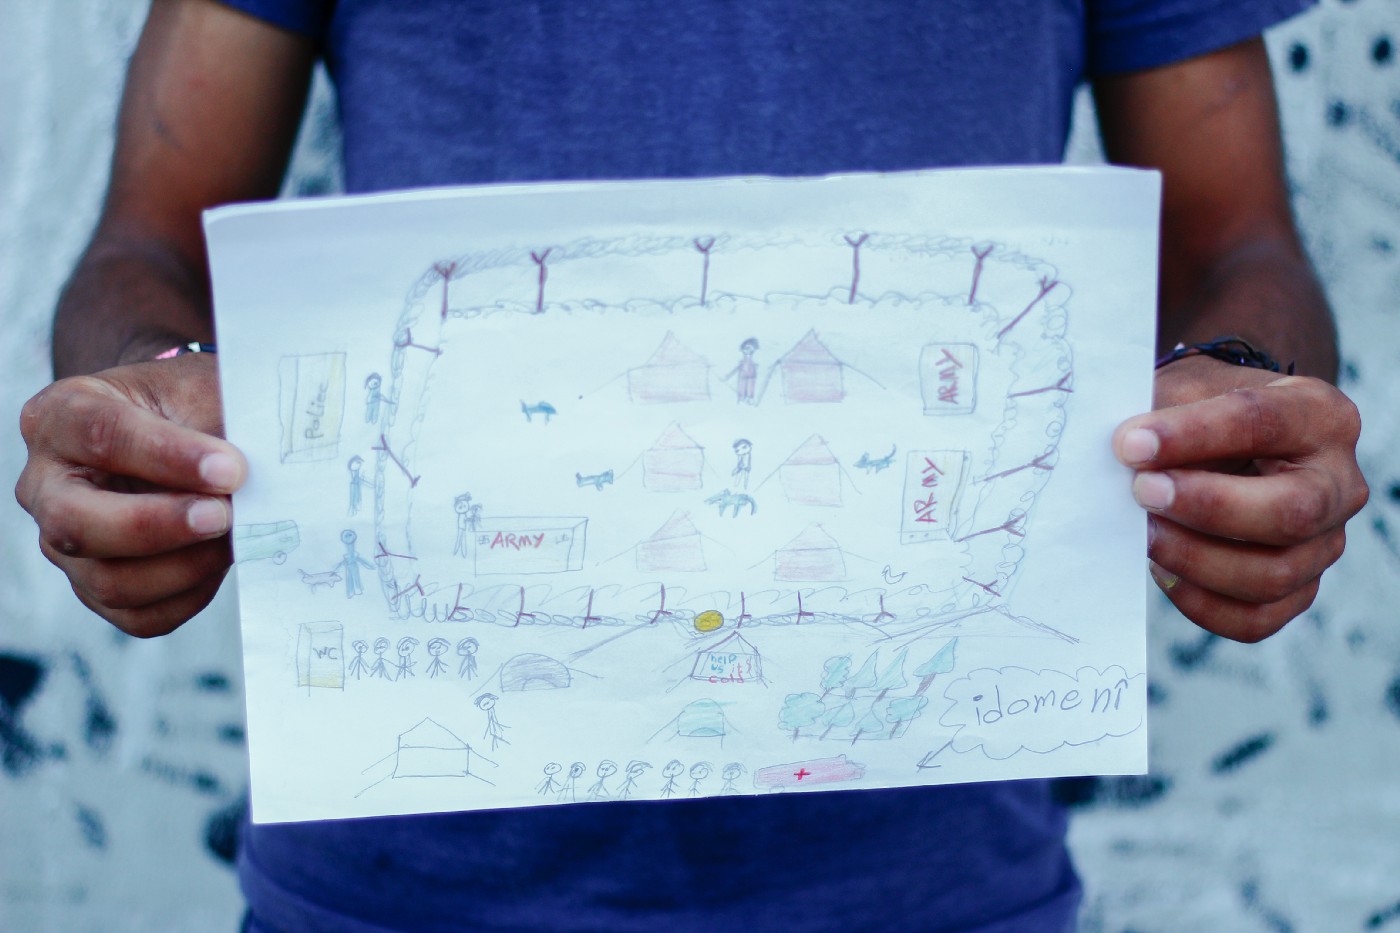 ARMY
Police
ARMY
ARMY
WC
help
us it's
cold
idomenî